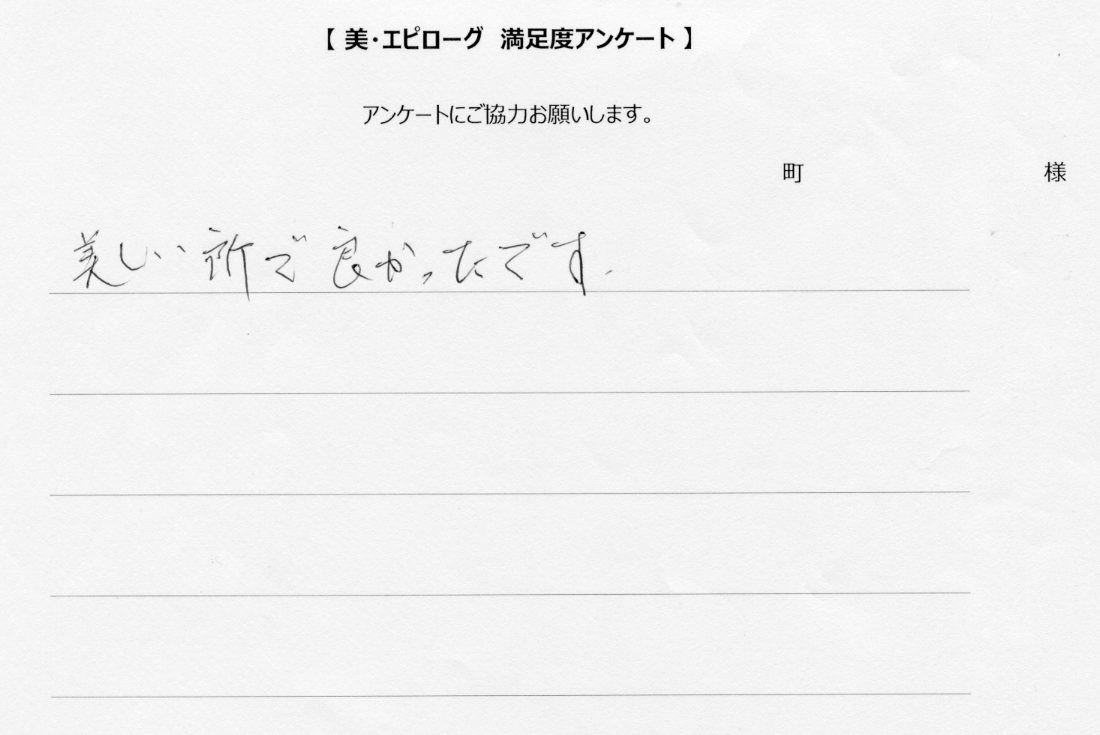 【 美・エピローグ 満足度アンケート 】
アンケートにご協力お願いします。
町 様
美しい所で良かったです.